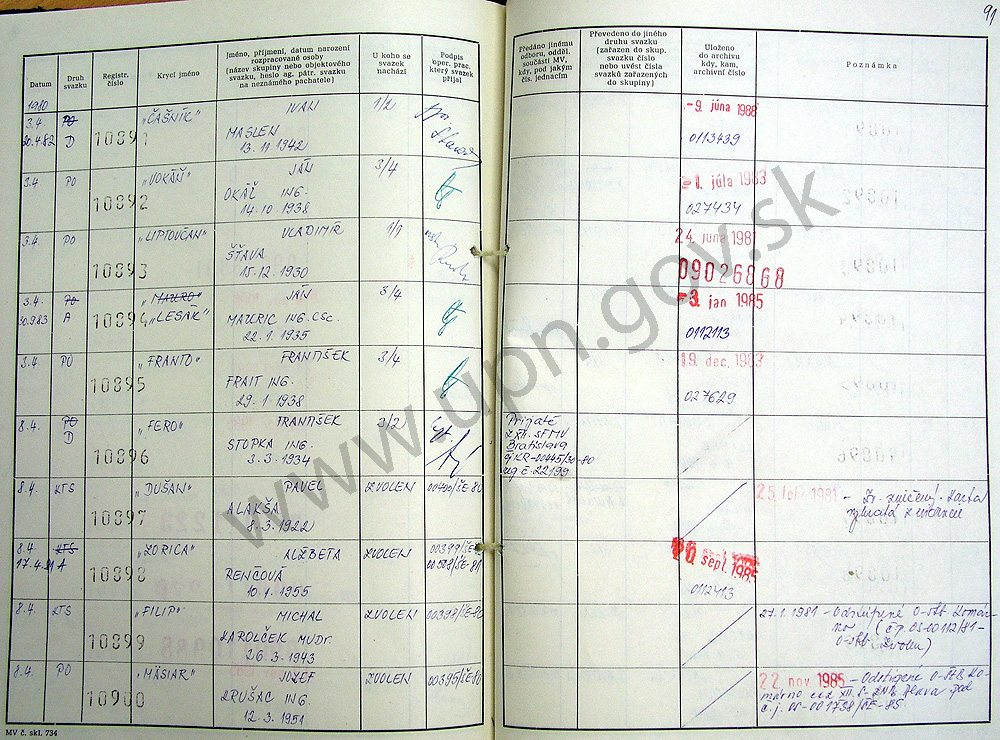 91
Datum
Druh svazku
Registr. číslo
Krycí jméno
Jméno, příjmení, datum narození
rozpracované osoby
(název skupiny nebo objektového
svazku, heslo ag. pátr. svazku
na neznámého pachatele)
U koho se
svazek
nachází
Podpis
oper. prac.
který svazek
přijal
Předáno jinému
odboru, odděl.
součásti MV,
kdy, pod jakým
čís. jednacím
Převedeno do jiného
druhu svazku
(zařazen do skup.
svazku číslo
nebo uvést čísla
svazků zařazených
do skupiny)
Uloženo
do archivu
kdy, kam,
archivní číslo
Poznámka
1980
3.4. PO 10891 „ČAŠNÍK" IVAN 1/2 -9. júna 1988
20.4.82 D MASLEN 0113439
13.11.1942
3.4 PO 10892 „VOKÁŇ" JÁN 3/4 -1. júla 1983
OKÁĽ ING. 027434
14.10.1938
3.4 PO 10893 „LIPTOVČAN" VLADIMÍR 1/1 24. júna 1981
ŠŤAVA 09026868
15.12.1930
3.4. PO 10894 „MAURO" JÁN 3/4 -3. jan 1985
30.9.83 A „LESÁK" MAURIC ING. CSc. 0112113
22.1.1935
3.4. PO 10895 „FRANTO" FRANTIŠEK 3/4 19. dec. 1983
FRAIT ING. 027629
29.1.1938
8.4. PO 10896 „FERO" FRANTIŠEK 3/2 Prijaté
D STOPKA ING. z XII. SFMV
3.3.1934 Bratislava
22199
8.4. KTS 10897 „DUŠAN" PAVEL ZVOLEN 00400/ŠE-80 25. feb. 1981 - Zv. zničený. Karta
ALAKŠA vybratá z evidencie
8.3.1922
8.4 KTS 10898 „ZORICA" ALŽBETA ZVOLEN 00399/ŠE-80 20. sept. 1985
17.4.81 A RENČOVÁ 0112413
10.1.1955
8.4. KTS 10899 „FILIP" MICHAL ZVOLEN 00398/ŠE-80 27.1.1981 - Odstúpené O-ŠtB Komár-
KAROLČEK MUDr. no (čp. OS-00112/81-
26.3.1943 O-ŠtB Zvolen)
8.4. PO 10900 „MÄSIAR" JOZEF ZVOLEN 00395/ŠE-80 22 nov 1985 - Odstúpené O-ŠTB Ko-
LRUŠAC ING. márno
12.3.1951
MV č. skl. 734
www.upn.gov.sk